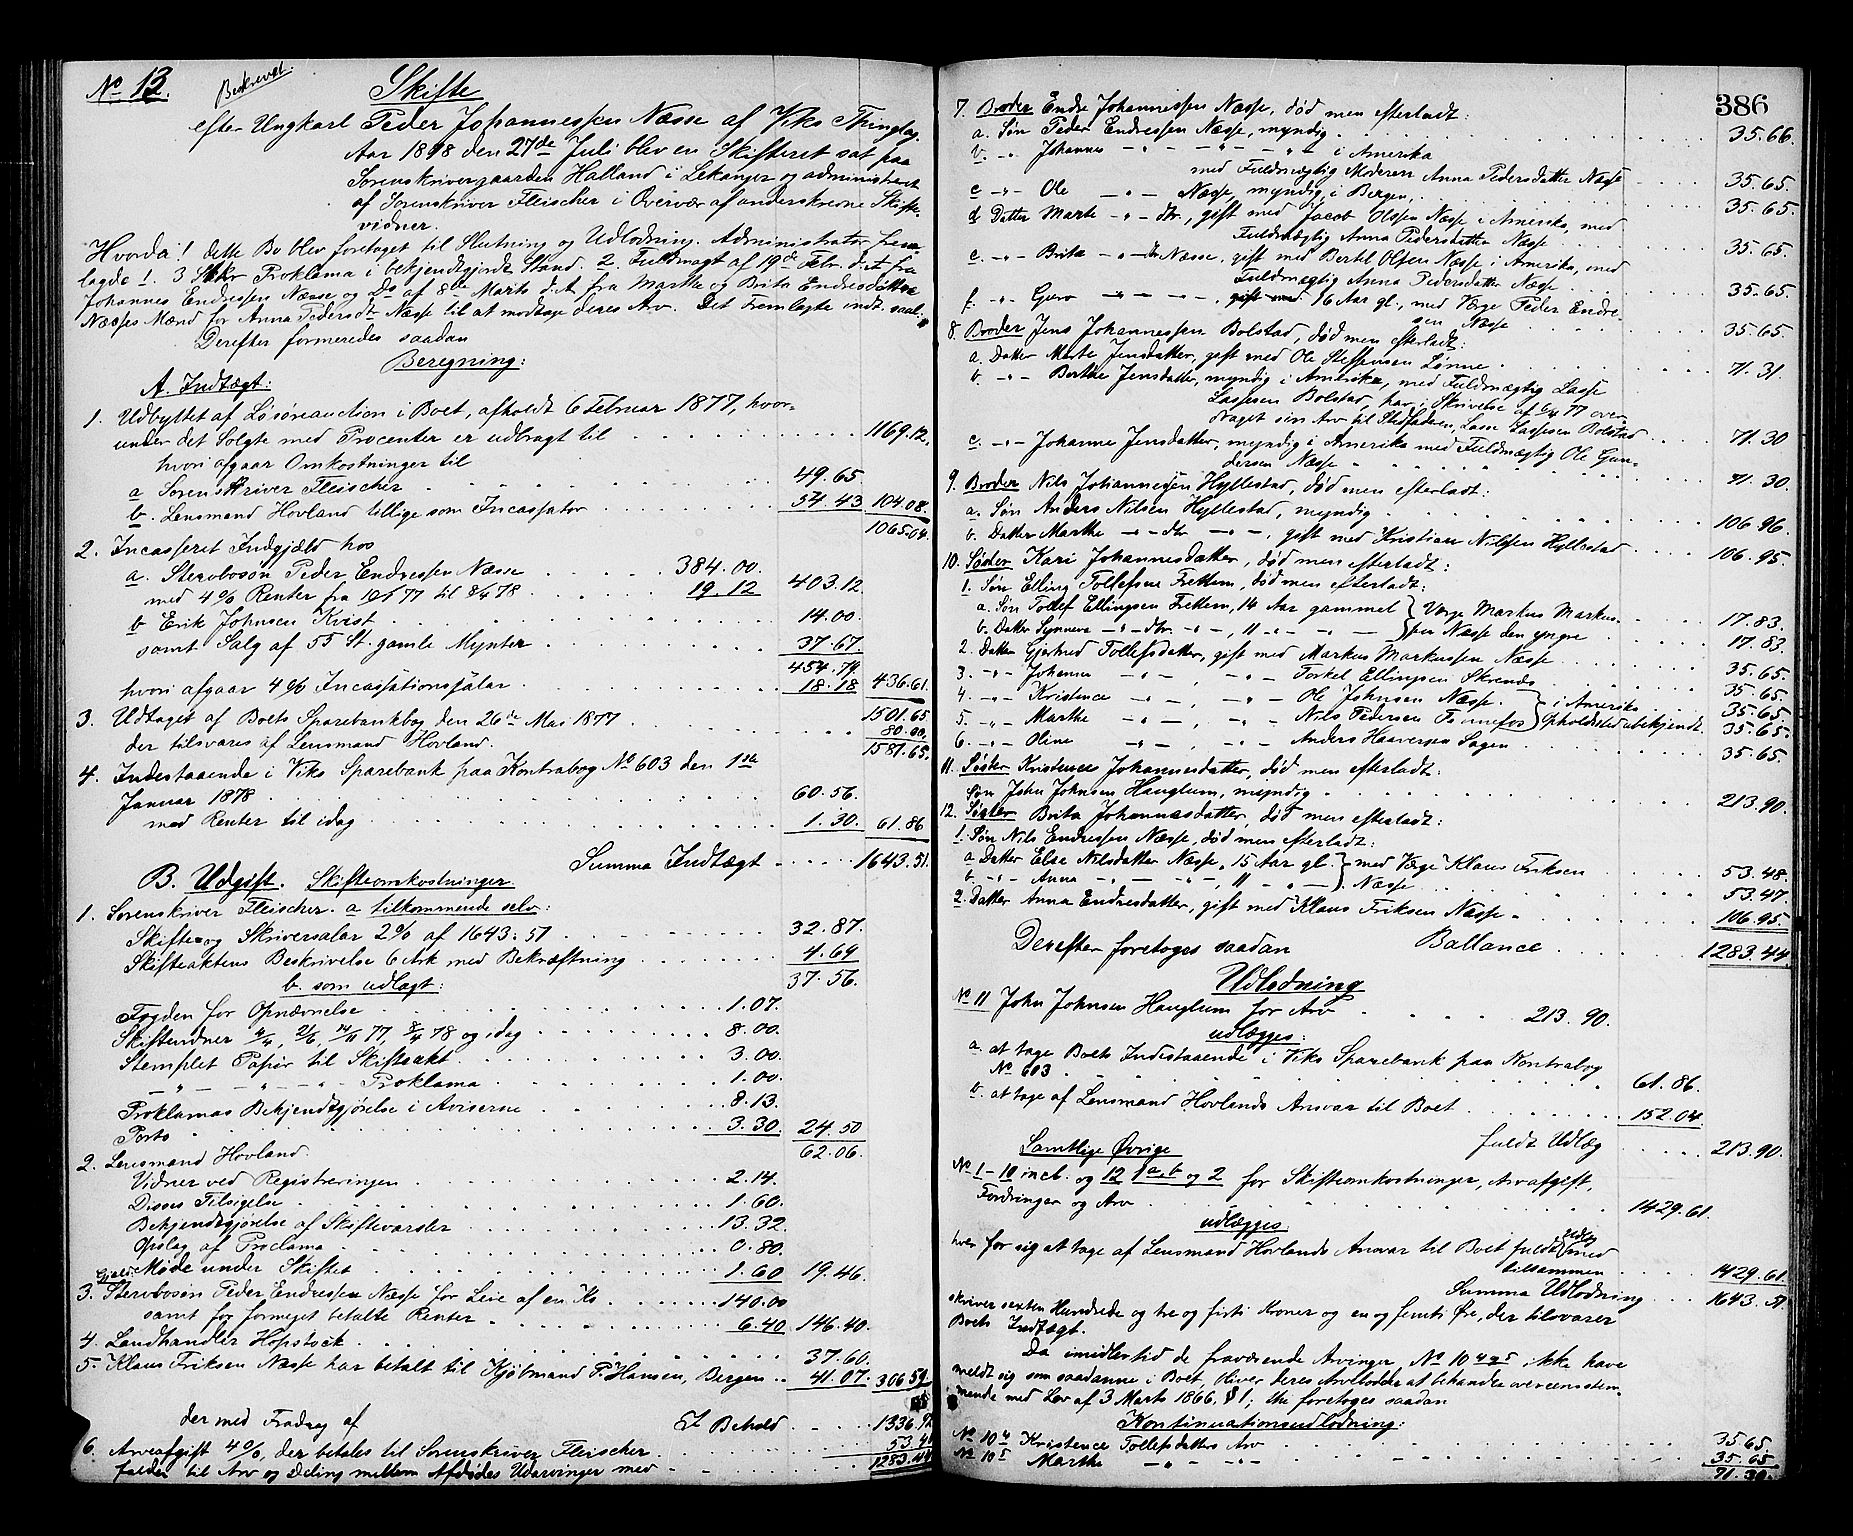 No 13. Beskrevet.
Skifte
efter Ungkarl Peder Johannessen Næsse af Viks Thinglag.
Aar 1878 den 27de Juli blev en Skifteret sat paa
Sorenskrivergaarden Hatland i Lekanger og administreret
af Sorenskriver Fleischer i Overvær af underskrevne Skifte-
vidner.
Hvorda! dette Bo blev foretaget til Slutning og Udlodning. Administrator frem-
lagde 1. 3 Stkr Proklama i bekjendtgjordt Stand. 2. Fuldmagt af 19de Febr. d.A. fra
Johannes Endressen Næsse og Do af 8de Marts d.A. fra Marthe og Brita Endresdøttre
Næsses Mænd for Anna Pedersdtr Næsse til at modtage deres Arv. Det Fremlagte indt. saal.
Derefter formeredes saadan
Beregning:
A. Indtægt:
1. Udbyttet af Løsøreauction i Boet, afholdt 6 Februar 1877, hvor-
under det Solgte med Procenter er udbragt til 1169.12.
hvori afgaar Omkostninger til
a Sorenskriver Fleischer 49.65
b. Lensmand Hovland tillige som Incassator 54.43 104.08.
1065.04.
2. Incasseret Indgjæld hos
a. Stervbosøn Peder Endressen Næsse 384.00.
med 4% Renter fra 19/5 77 til 8/4 78 19.12 403.12.
b Erik Johnsen Kvist 14.00.
samt Salg af 55 St. gamle Mynter 37.67.
454.79
hvori afgaar 4% Incassationssalær 18.18 436.61.
1501.65.
3. Udtaget af Boets Sparebankbog den 26de Mai 1877 80.00.
der tilsvares af Lensmand Hovland. 1581.65.
4. Indestaaende i Viks Sparebank paa Kontrabog No 603 den 1ste
Januar 1878 60.56.
med Renter til idag 1.30. 61.86
Summa Indtægt 1643.51.
B. Udgift. Skifteomkostninger
1. Sorenskriver Fleischer. a tilkommende selv:
Skifte og Skriversalær 2% af 1643.51 32.87.
Skifteaktens Beskrivelse 6 Ark med Bekræftning 4.69
37.56.
b. som udlagt:
Fogden for Opnævnelse 1.07.
Skiftevidner 4/4, 2/6, 14/11 77, 8/4 78 og idag 8.00.
Stemplet Papir til Skifteakt 3.00.
— " — " — " — Proklama 1.00.
Proklamas Bekjendtgjørelse i Aviserne 8.13.
Porto 3.30. 24.50
62.06.
2. Lensmand Hovland.
Vidner ved Registreringen 2.14.
Disses Tilsigelse 1.60.
Bekjendtgjørelse af Skiftevarsler 13.32.
Opslag af Proclama 0.80.
Møde under Skiftet 1.60 19.46.
Gjæld:
3. Stervbosøn Peder Endressen Næsse for Leie af en Ko 140.00
samt for formeget betalte Renter 6.40 146.40.
4. Landhandler Hopstock 37.60.
5. Klaus Friksen Næsse har betalt til Kjøbmand P. Hansen, Bergen 41.07. 306.59.
I Behold 1336.92
der med Fradrag af
6. Arveafgift 4%, der betales til Sorenskriver Fleischer 53.48
falder til Arv og Deling mellem Afdødes Udarvinger med 1283.44
386
7. Broder Endre Johannessen Næsse, død men efterladt:
a. Søn Peder Endressen Næsse, myndig 35.66.
b. -"- Johannes -"- -"- -"- i Amerika
med Fuldmægtig Moderen Anna Pedersdatter Næsse 35.65.
c -"- Ole -"- Næsse, myndig i Bergen, 35.65.
d. Datter Marte -"- dtr., gift med Jacob Olsen Næsse i Amerika, med
Fuldmægtig Anna Pedersdatter Næsse 35.65.
e. -"- Brita -"- dtr Næsse, gift med Bertel Olsen Næsse i Amerika, med
Fuldmægtig Anna Pedersdatter Næsse 35.65.
f. -"- Guro -"- -"-, gift med 16 Aar gl., med Værge Peder Endre-
sen Næsse 35.65.
8. Broder Jens Johannessen Bolstad, død men efterladt:
a. Datter Marte Jensdatter, gift med Ole Steffensen Lønne 71.31.
b. -"- Berthe Jensdatter, myndig i Amerika, med Fuldmægtig Lasse
Lassesen Bolstad, har i Skrivelse af 6/4 77 over-
draget sin Arv til Stedfaderen, Lasse Lassesen Bolstad 71.30
c. -"- Johanne Jensdatter, myndig i Amerika med Fuldmægtig Ole Gun-
dersen Næsse 71.30.
9. Broder Nils Johannessen Hyllestad, død men efterladt:
a. Søn Anders Nilsen Hyllestad, myndig 106.96.
b. Datter Marthe -"- dtr -"-, gift med Kristian Nilsen Hyllestad 106.95.
10. Søster Kari Johannesdatter, død men efterladt:
1. Søn Elling Tollefsen Frettem, død men efterladt:
a. Søn Tollef Ellingsen Frettem, 14 Aar gammel } Værge Markus Markus- 17.83.
b. Datter Synneva -"- dtr. -"-, 11 -"- -"- } sen Næsse den yngre 17.83
2. Datter Gjertrud Tollefsdatter, gift med Markus Markussen Næsse 35.65.
3. -"- Johanna -"-, -"- Torkel Ellingsen Skrends 35.65.
4. -"- Kristence -"-, -"- Ole Johnsen Næsse } i Amerika 35.65.
5. -"- Marthe -"-, -"- Nils Pedersen Finnefos } Opholdsted ubekjendt. 35.65.
6. -"- Oline -"-, -"- Anders Haaversen Sagen 35.65.
11. Søster Kristence Johannesdatter, død men efterladt:
Søn John Johnsen Hauglum, myndig 213.90.
12. Søster Brita Johannesdatter, død men efterladt:
1. Søn Nils Endressen Næsse, død men efterladt:
a Datter Elsa Nilsdatter Næsse, 15 Aar gl. } med Værge Klaus Friksen 53.48.
b -"- Anna -"- -"-, 11 -"- } Næsse 53.47.
2. Datter Anna Endresdatter, gift med Klaus Friksen Næsse 106.95
Ballance 1283.44
Derefter foretoges saadan
Udlodning
No 11 John Johnsen Hauglum for Arv 213.90.
udlægges:
a. at tage Boets Indestaaende i Viks Sparebank paa Kontrabog
No 603 61.86.
b. at tage af Lensmand Hovlands Ansvar til Boet 152.04.
fuldt Udlæg 213.90.
Samtlige Øvrige
No 1-10 incl. og 12 1 a, b og 2 for Skifteomkostninger, Arveafgift,
Fordringer og Arv 1429.61.
udlægges
hver for sig at tage af Lensmand Hovlands Ansvar til Boet fuldt Udlæg med
tilsammen 1429.61.
Summa Udlodning 1643.51
skriver sexten Hundrede og tre og firti Kroner og en og femti Øre, der tilsvarer
Boets Indtægt.
Da imidlertid de fraværende Arvinger, No 10 4 og 5 ikke have
meldt sig som saadanne i Boet, bliver deres Arvelodder at behandle overensstem-
mende med Lov af 3 Marts 1866, § 1; thi foretoges saadan
Kontinuationsudlodning:
No 10 4 Kristence Tollefsdatters Arv 35.65.
No 10 5 Marthe -"- -"- 35.65.
71.30.